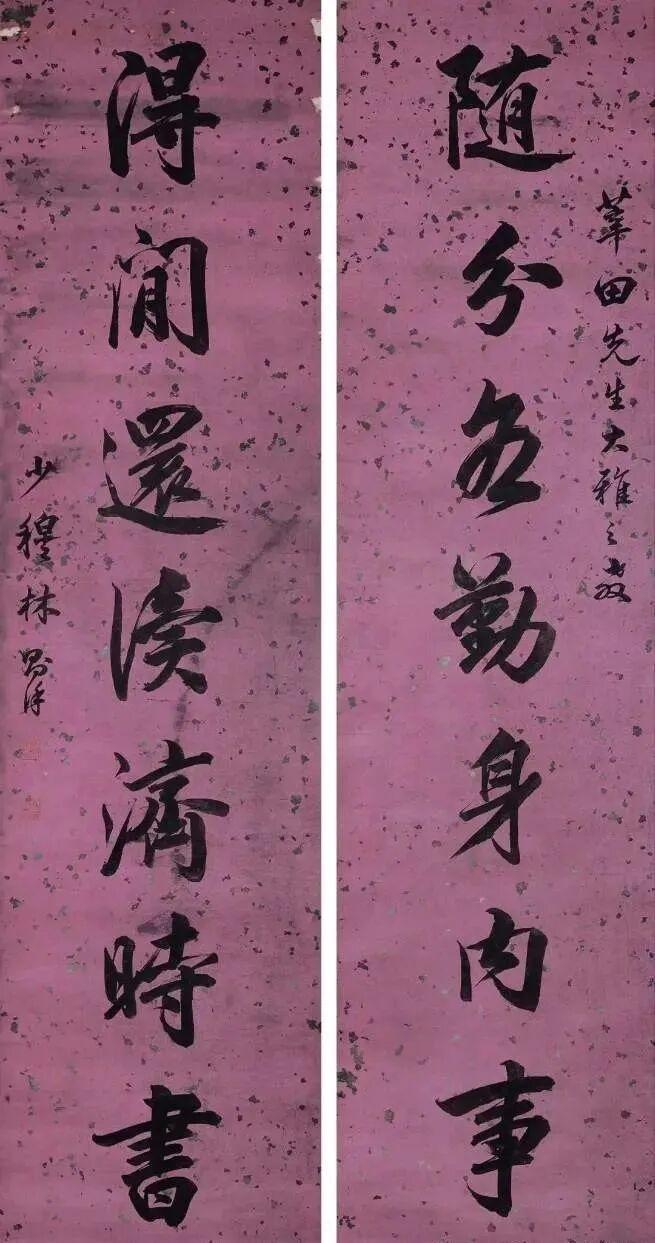 随分各勤身内事
葦田先生大雅之教
得閒還讀濟時書
少穆林則徐